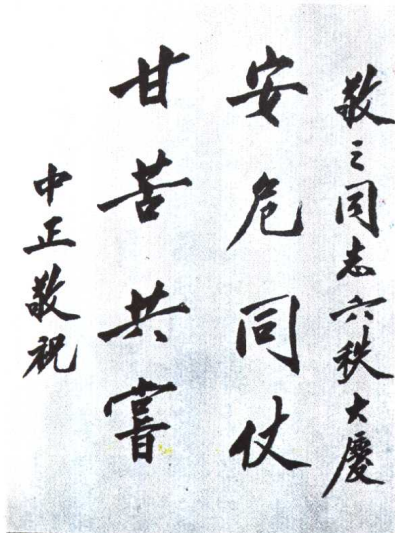 敬之同志六秩大慶
安危同仗
甘苦共嘗
中正敬祝